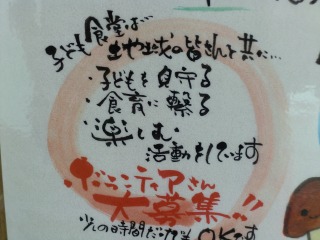 子ども食堂は
地域の皆さんと共に…
・子どもを見守る
・食育に繋る
・楽しむ
活動をしています
ボランティアさん
大募集!!
少しの時間だけでもOKです